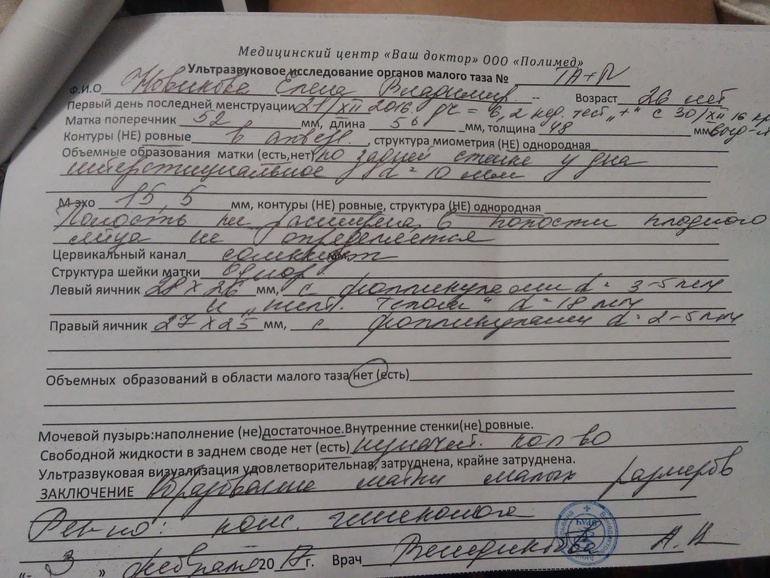 Медицинский центр «Ваш доктор» ООО «Полимед»
Ультразвуковое исследование органов малого таза № ТА+
Ф.И.О Новикова Елена Владимир. Возраст 26 лет
Первый день последней менструации 21/XII 2016 = 6,2 нед. тест "+" с 30/XII 16
Матка поперечник 52 мм, длина 56 мм, толщина 48 мм
Контуры (НЕ) ровные в , структура миометрия (НЕ) однородная
Объемные образования матки (есть,нет) по задней стенке у дна
интерстициальное d = 10 мм
М эхо 15,5 мм, контуры (НЕ) ровные, структура (НЕ) однородная
Полость не расширена, в полости плодного
яйца не определяется
Цервикальный канал сомкнут
Структура шейки матки однор.
Левый яичник 28 х 26 мм, с фолликулами d = 3-5 мм
и " телом" d = 18 мм
Правый яичник 27 х 25 мм, с фолликулами d = 2-5 мм
Объемных образований в области малого таза нет (есть)
Мочевой пузырь:наполнение (не)достаточное.Внутренние стенки(не) ровные.
Свободной жидкости в заднем своде нет (есть) незначит. кол во
Ультразвуковая визуализация удовлетворительная, затруднена, крайне затруднена.
ЗАКЛЮЧЕНИЕ Образование матки малых размеров
Рек-но: конс. гинеколога
"- 3 » февраля 20 17 г. Врач А. В